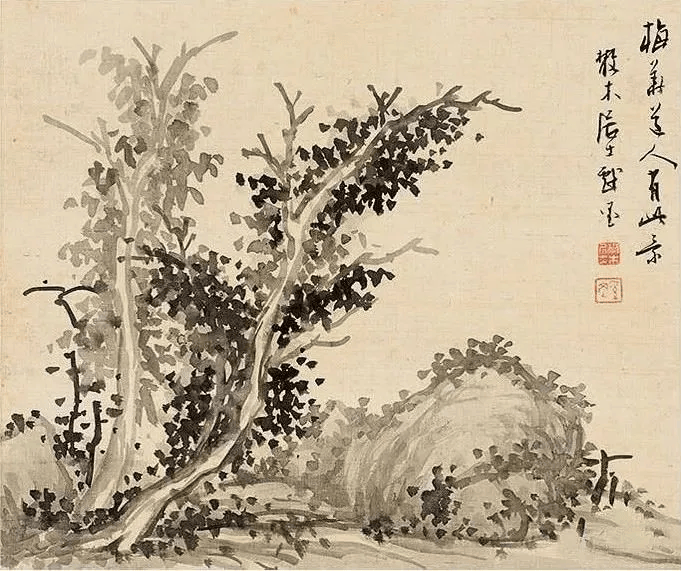 梅華道人有此景
散木居士戲墨